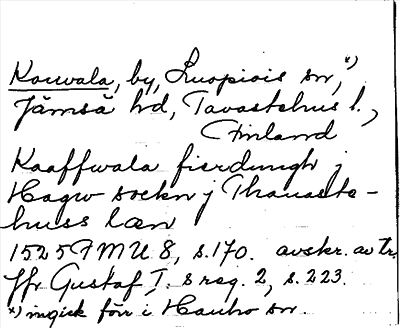 Kouvala, by, Luopiois sn, x)
Jämsä hd, Tavastehus l.,
Finland
Kaaffwala fierdungh j
Hagw sockn j Thauaste-
huss læn
1525 FMU 8, s. 170. avskr. av tr.
ffr Gustaf I. s reg. 2, s. 223.
x) ingick förr i Hauho sn.